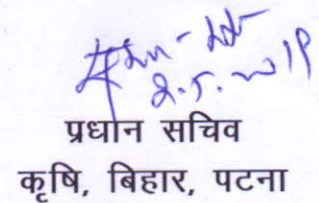 2.5.2019
प्रधान सचिव
कृषि, बिहार, पटना